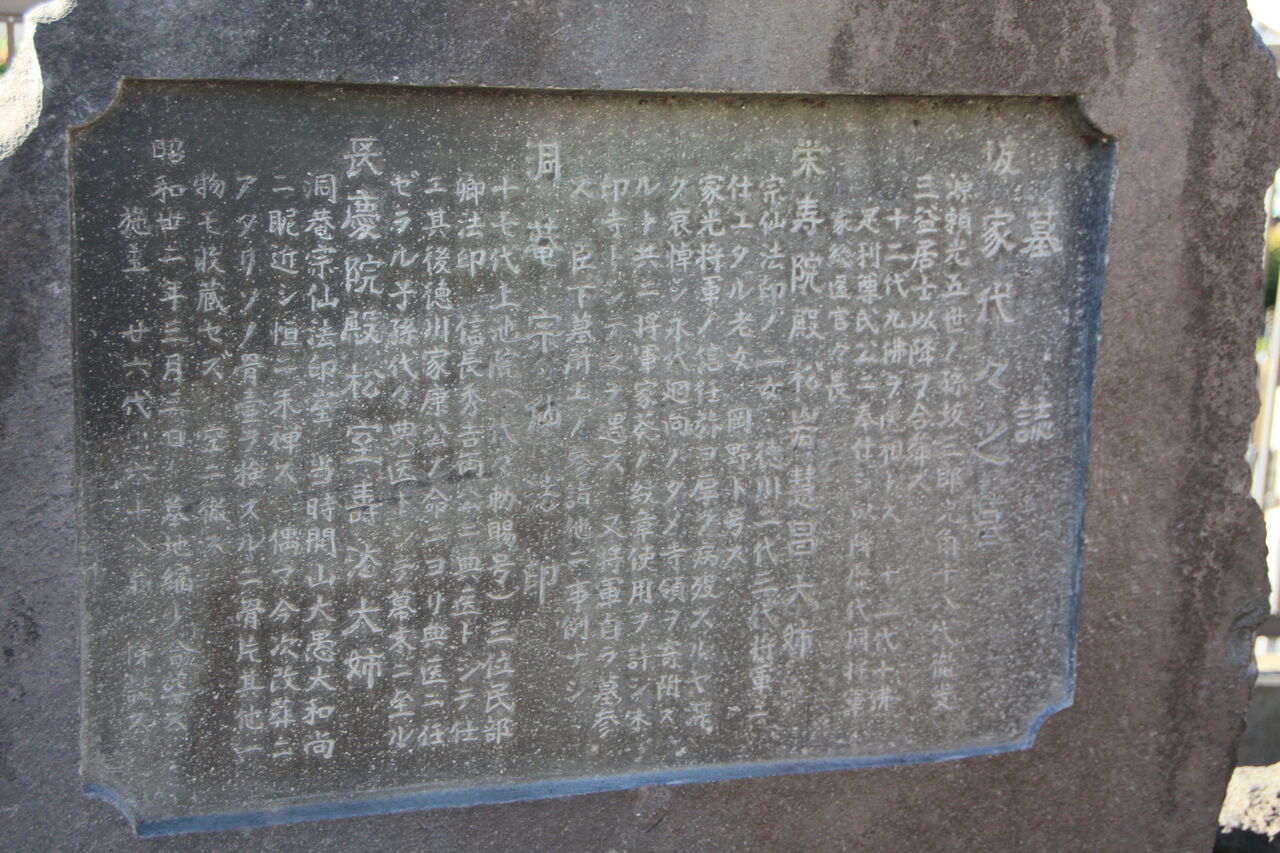 墓誌
坂家代々之墓
源頼光五世ノ孫坂三郎光角十八代徹叟
三益居士以降ヲ合葬ス
十二代九佛ヲ医祖トス 十一代十沸
足利尊氏公ニ奉仕シ以降歴代同将軍
家総医官々長
栄寿院殿松岩慧昌大姉
宗仙法印ノ二女 徳川二代三代将軍ニ
仕エタル老女 岡野ト号ス
家光将軍ノ信任弥ヨ厚ク病歿スルヤ深
ク哀悼シ永代廻向ノタメ寺領ヲ寄附ス
ルト共ニ将軍家葵ノ紋章使用ヲ許シ朱
印寺トシテ之ヲ遇ス 又将軍自ラ墓参
ス 臣下墓所エノ参詣他ニ事例ナシ
洞菴宗仙法印
十七代上池院(代々勅賜号)三位民部
卿法印 信長秀吉両公ニ典医トシテ仕
エ其後徳川家康公ノ命ニヨリ典医ニ任
ゼラル子孫代々典医トシテ幕末ニ至ル
長慶院殿松室壽冾大姉
洞菴宗仙法印室 当時開山大愚大和尚
ニ昵近シ恒ニ禾禅ス 偶マ今次改葬ニ
アタリソノ骨壷ヲ検スルニ骨片其他一
物モ收蔵セズ 空ニ徹ス
昭和廿二年三月三日 墓地縮少
施主 廿六代 六十八翁